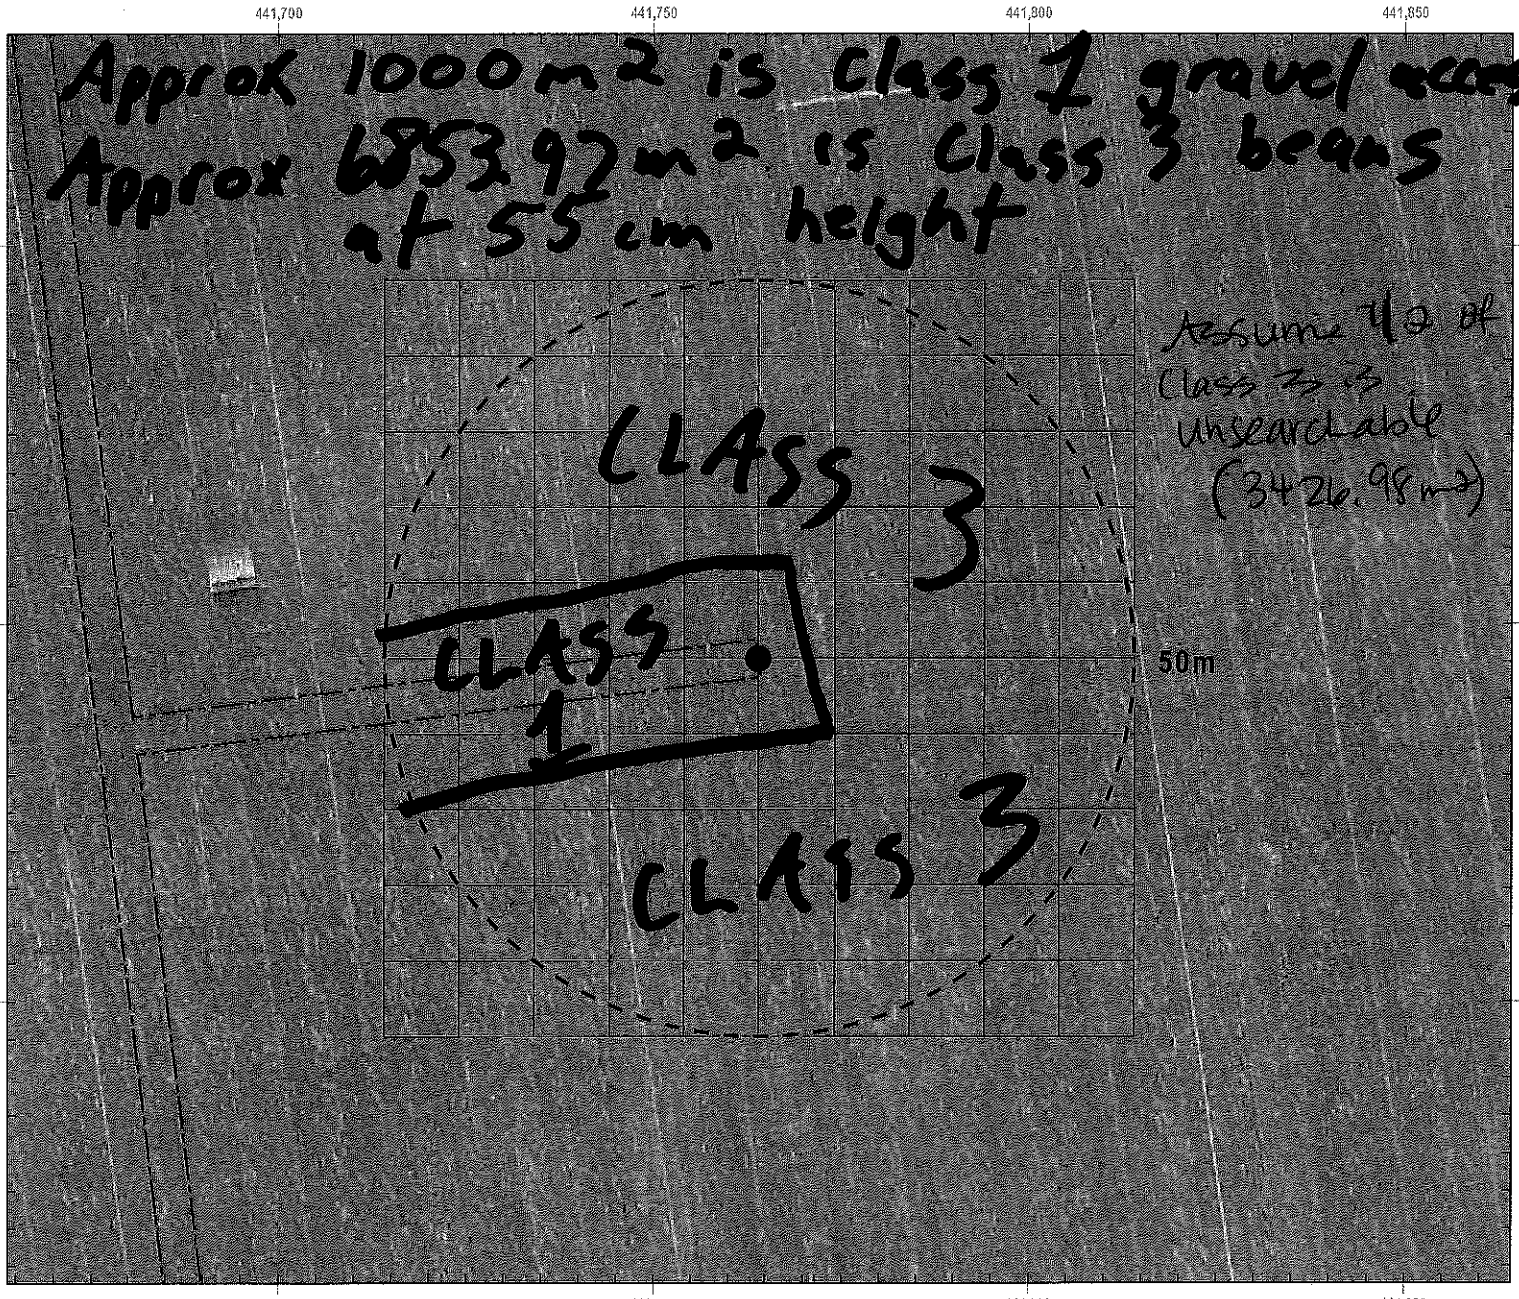 441,700 441,750 441,800 441,850
Approx 1000 m2 is Class 1 gravel acces
Approx 6853.97 m2 is Class 3 beans
at 55 cm height
Assume 1/2 of
Class 3 is
unsearchable
(3426.98 m2)
CLASS 3
CLASS
1
50m
CLASS 3